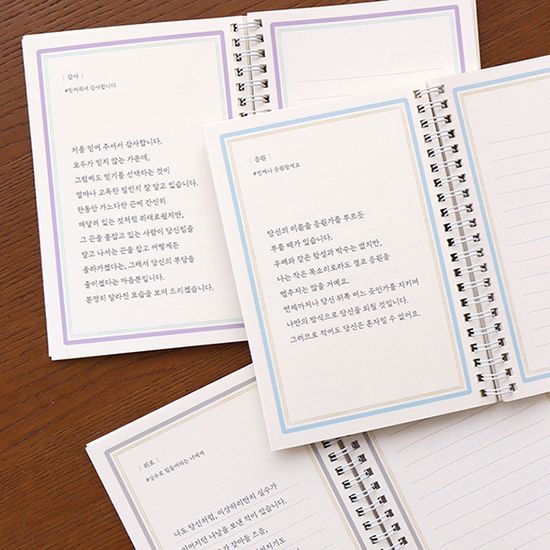 | 감사 |
#믿어줘서 감사합니다
처음 믿어 주셔서 감사합니다.
모두가 믿지 않는 가운데,
그럼에도 믿기를 선택하는 것이
얼마나 고독한 일인지 잘 알고 있습니다.
한동안 가느다란 끈에 간신히
매달려 있는 것처럼 위태로웠지만,
그 끈을 붙잡고 있는 사람이 당신임을
알고 나서는 끈을 잡고 어떻게든
올라가겠다는, 그래서 당신의 부담을
줄이겠다는 마음뿐입니다.
분명히 달라진 모습을 보여 드리겠습니다.
| 응원 |
#언제나 응원할게요
당신의 이름을 응원가를 부르듯
부를 때가 있습니다.
우레와 같은 함성과 박수는 없지만,
나는 작은 목소리로라도 결코 응원을
멈추지는 않을 거예요.
언제까지나 당신 뒤쪽 어느 곳인가를 지키며
나만의 방식으로 당신을 외칠 것입니다.
그러므로 적어도 당신은 혼자일 수 없어요.
| 위로 |
#실수로 힘들어하는 너에게
나도 당신처럼, 이상하리만치 실수가
이어지던 나날을 보낸 적이 있습니다.